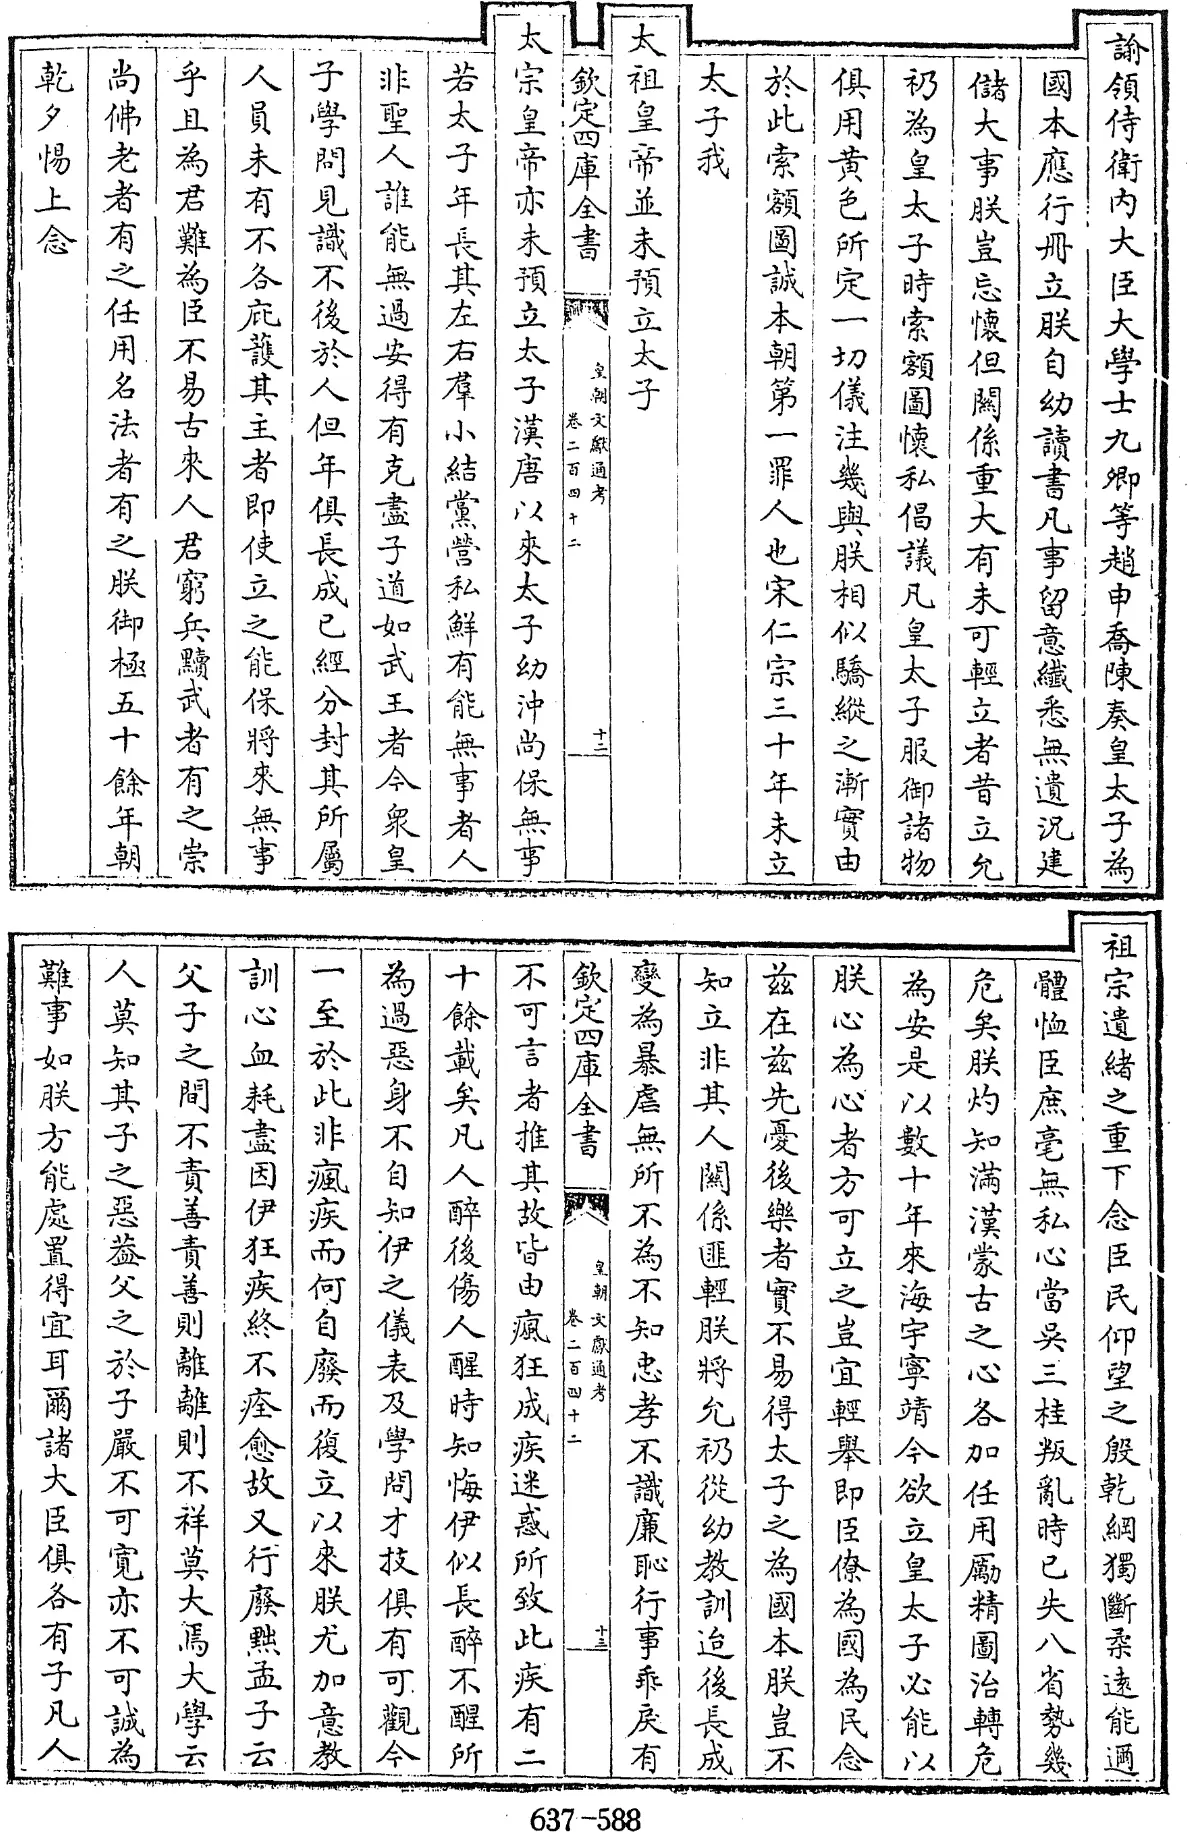 諭領侍衛内大臣大學士九卿等趙申喬陳奏皇太子為
國本應行冊立朕自幼讀書凡事留意纎悉無遺況建
儲大事朕豈忘懷但關係重大有未可輕立者昔立允
礽為皇太子時索額圖懷私倡議凡皇太子服御諸物
俱用黄色所定一切儀注幾與朕相似驕縱之漸實由
於此索額圖誠本朝第一罪人也宋仁宗三十年未立
太子我
太祖皇帝並未預立太子
欽定四庫全書
皇朝文獻通考
卷二百四十二
十二
太宗皇帝亦未預立太子漢唐以來太子幼沖尚保無事
若太子年長其左右羣小結黨營私鮮有能無事者人
非聖人誰能無過安得有克盡子道如武王者今衆皇
子學問見識不後於人但年俱長成已經分封其所屬
人員未有不各庇䕶其主者即使立之能保將來無事
乎且為君難為臣不易古來人君窮兵黷武者有之崇
尚佛老者有之任用名法者有之朕御極五十餘年朝
乾夕惕上念
祖宗遺緒之重下念臣民仰望之殷乾綱獨斷柔逺能邇
體恤臣庶毫無私心當吳三桂叛亂時已失八省勢幾
危矣朕灼知滿漢蒙古之心各加任用勵精圖治轉危
為安是以數十年來海宇寧靖今欲立皇太子必能以
朕心為心者方可立之豈宜輕舉即臣僚為國為民念
兹在兹先憂後樂者實不易得太子之為國本朕豈不
知立非其人關係匪輕朕將允礽從幼教訓迨後長成
變為暴虐無所不為不知忠孝不識廉恥行事乖戾有
欽定四庫全書
皇朝文獻通考
卷二百四十二
十三
不可言者推其故皆由瘋狂成疾迷惑所致此疾有二
十餘載矣凡人醉後傷人醒時知悔伊似長醉不醒所
為過惡身不自知伊之儀表及學問才技俱有可觀今
一至於此非瘋疾而何自廢而復立以來朕尤加意教
訓心血耗盡因伊狂疾終不痊愈故又行廢黜孟子云
父子之間不責善責善則離離則不祥莫大焉大學云
人莫知其子之惡葢父之於子嚴不可寛亦不可誠為
難事如朕方能處置得宜耳爾諸大臣俱各有子凡人
637-588